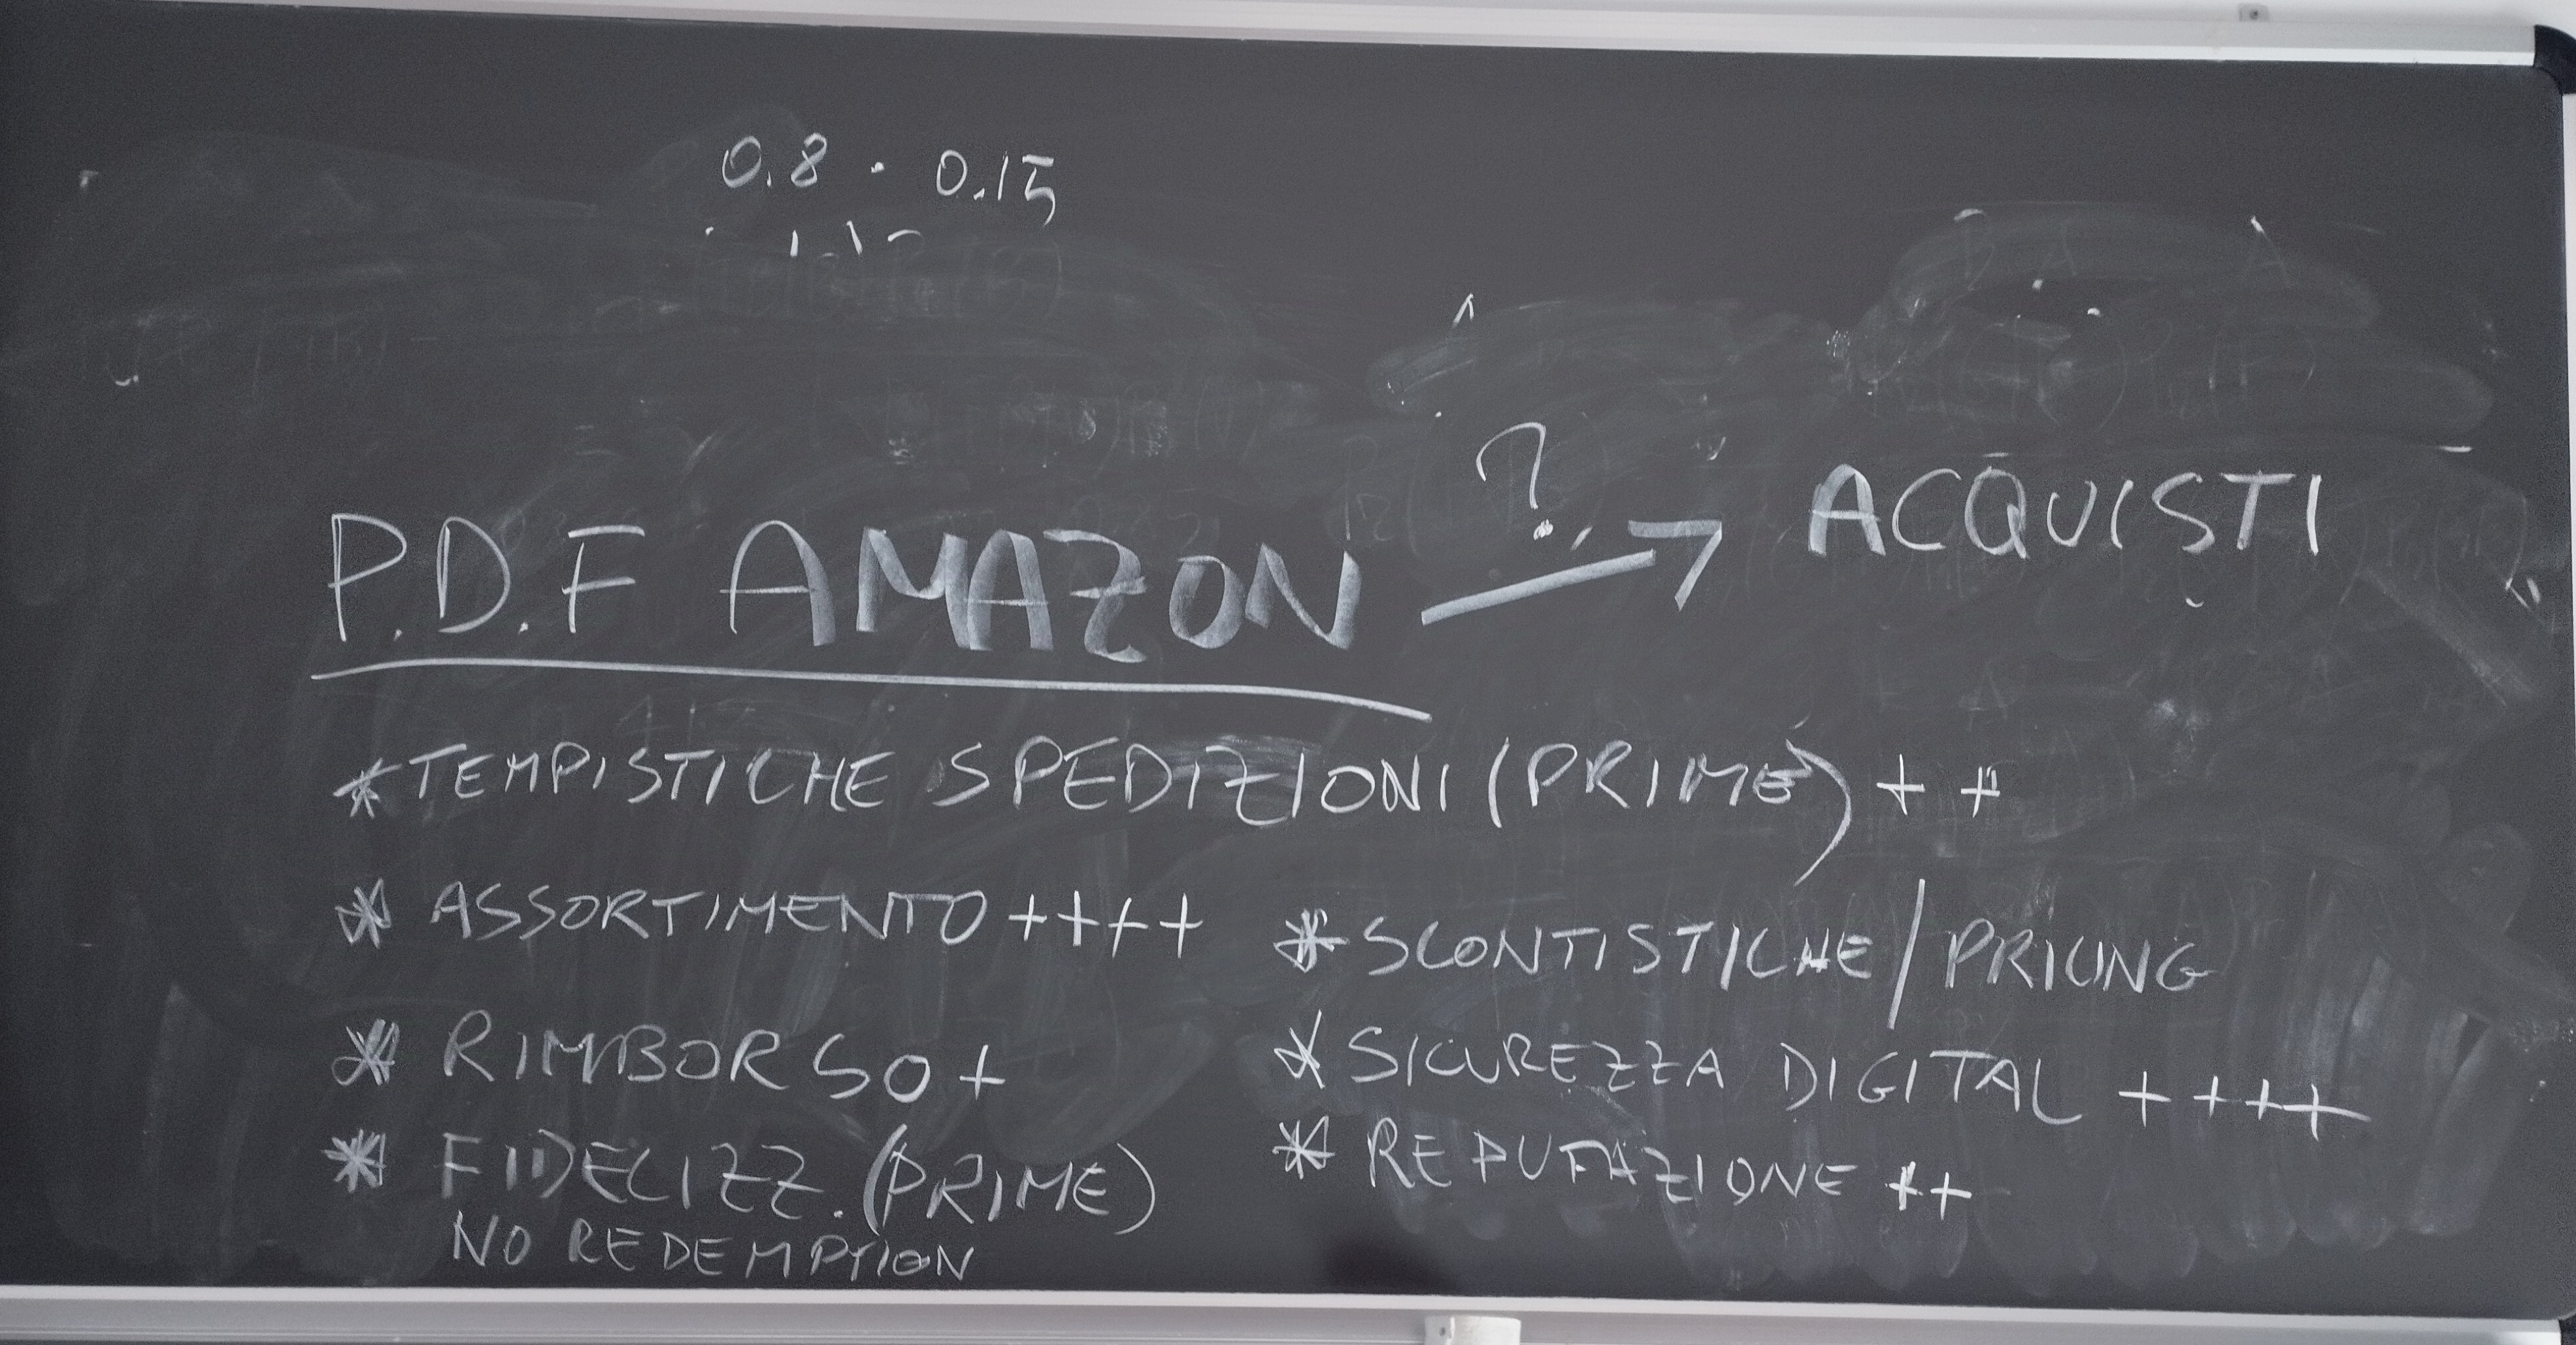 0.8 · 0.15
P.D.F AMAZON ? → ACQUISTI
* TEMPISTICHE SPEDIZIONI (PRIME) + +
* ASSORTIMENTO ++++
* RIMBORSO +
* FIDELIZZ. (PRIME)
NO REDEMPTION
* SCONTISTICHE / PRICING
* SICUREZZA DIGITAL ++++
* REPUTAZIONE ++